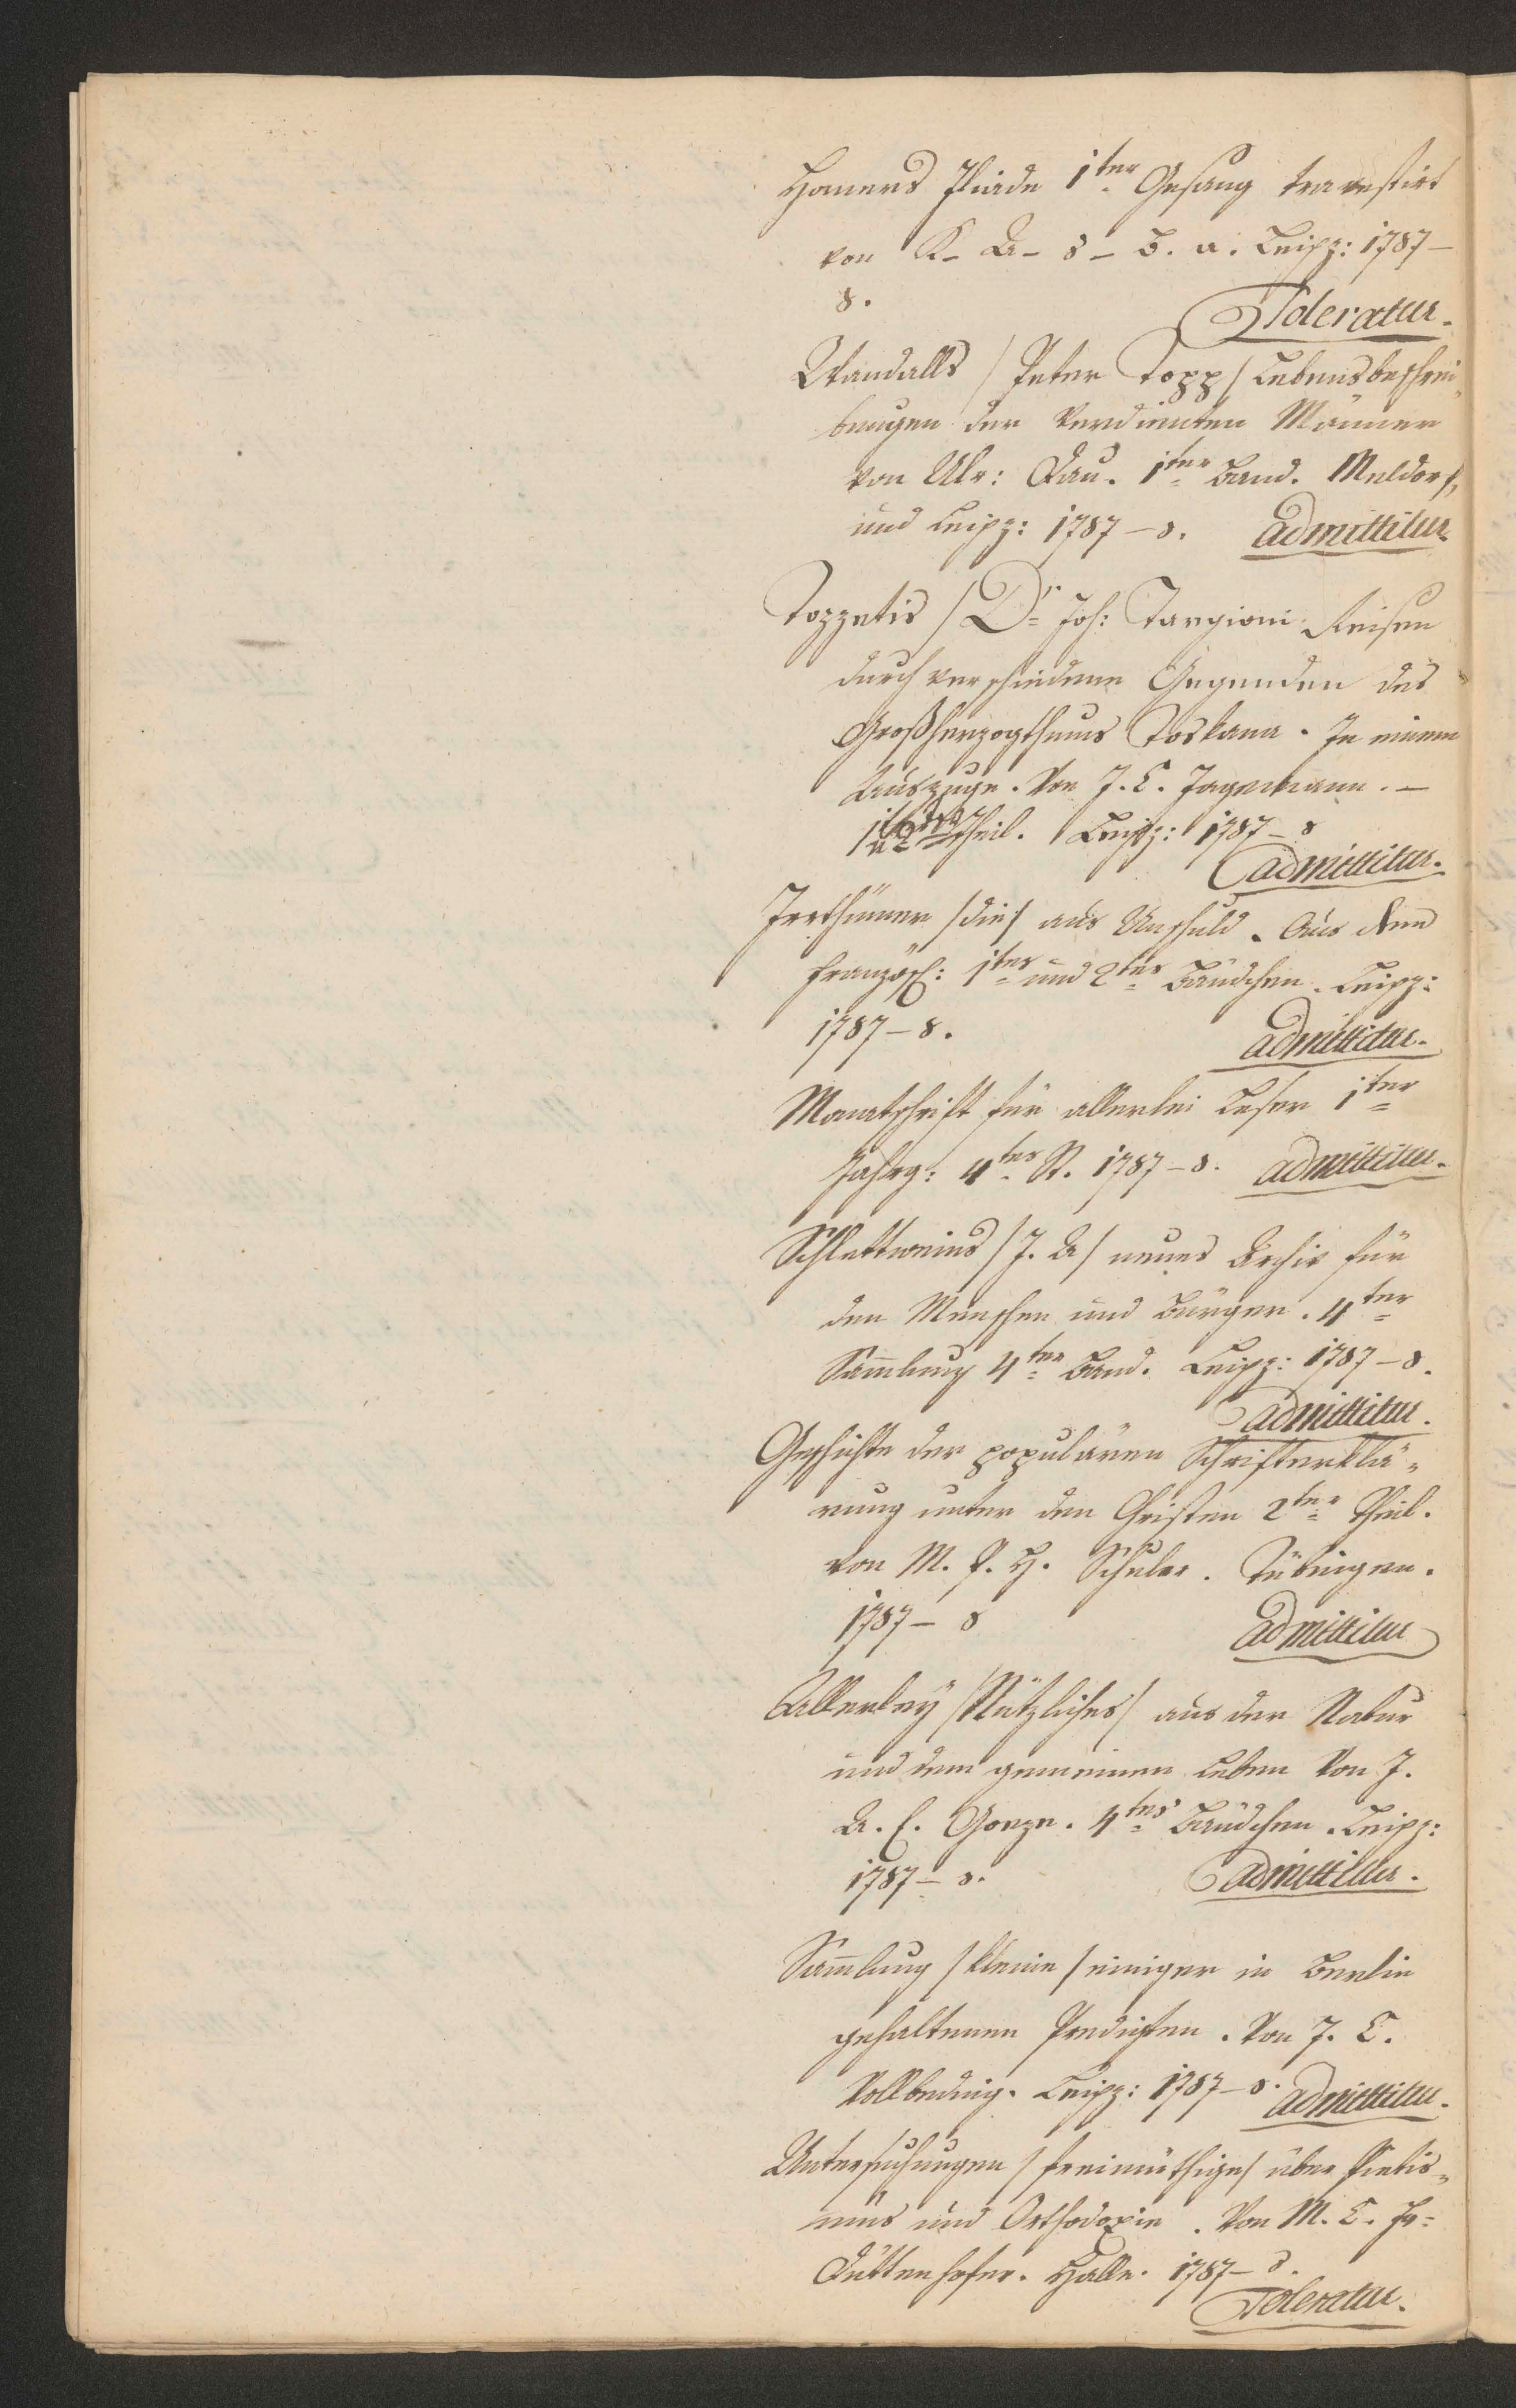 Homers Iliade 1ter Gesang travestirt
von K- A- S- B. a. Leipz: 1787-
8.
Toleratur.
Wandalls / Peter Topp / Lebensbeschrei„
bungen der Verdienten Männer
von Ulr: Dau. 1ter Band. Meldorf,
und Leipz: 1787-8. admittitur
Tozzetis / Dr Joh: Targioni Reisen
durch verschiedene Gegenden des
Großherzogthums Toskana. In einem
Auszuge. Von J. C. Jagemann. -
Theil. Leipz: 1787-8
admittitur.
Irrthümer /die/ aus Unschuld. Aus dem
französ: 1tes und 2tes Bändchen. Leipz:
1787-8.
admittitur.
Monatschrift für allerlei Leser 1ter
Jahrg: 4tes St. 1787-8. admittitur.
Schlettweins /J. A/ neues Archiv für
den Menschen und Bürger. 4ter
Sammlung 4ter Band. Leipz: 1787-8.
admittitur.
Geschichte der populären Schrifterklä„
rung unter den Christen 2ter Theil.
von M. P. H. Schuler. Tübingen.
1787-8
admittitur
Allerley /Nützliches/ aus der Natur
und dem gemeinen Leben Von J.
A. E. Goeze. 4tes Bändchen. Leipz:
1787-8.
admittitur.
Sammlung /kleine/ einiger in Berlin
gehaltenen Predigten. Von J. C.
Vollbeding. Leipz: 1787-8. admittitur.
Untersuchungen /freimüthige/ über Pietis„
mus und Orthodoxie. Von M. C. Fr=
Duttenhofer. Halle. 1787-8.
Toleratur.